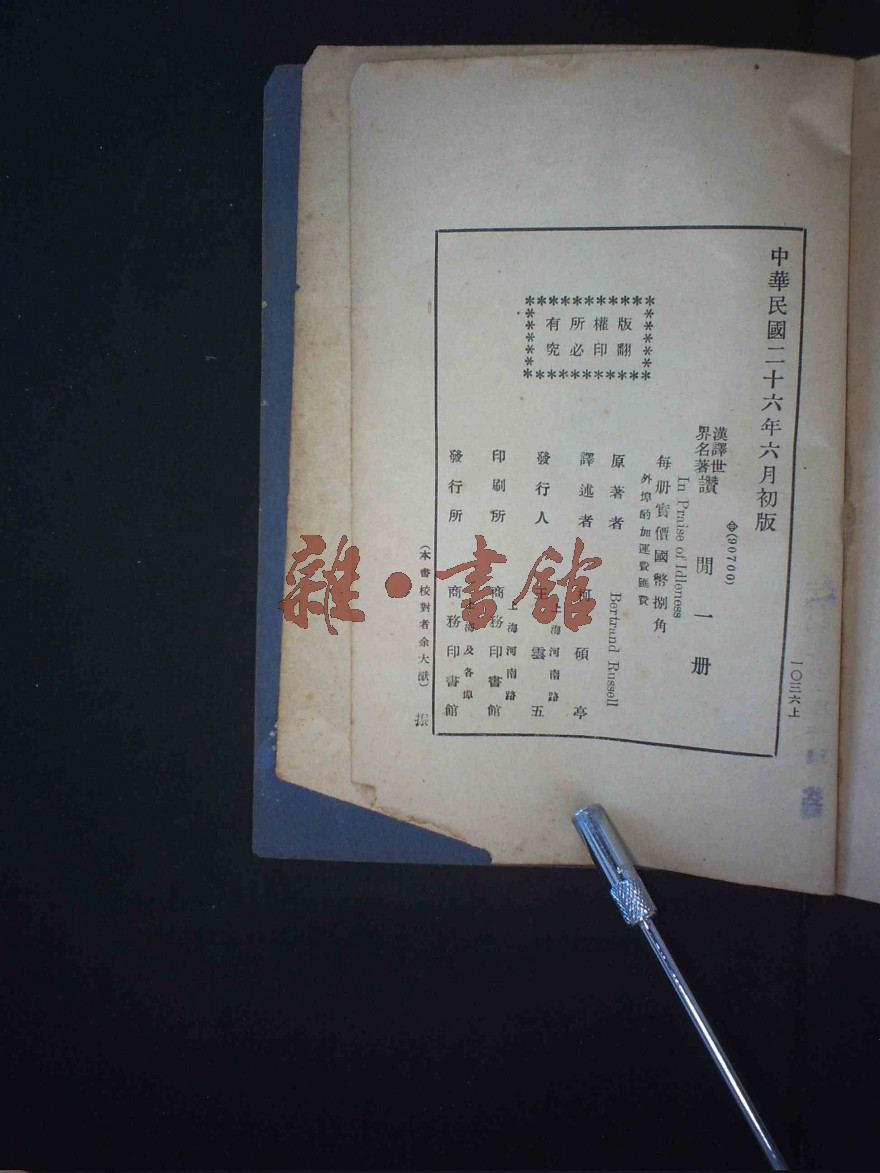 中華民國二十六年六月初版
一〇三六上
⊕(90700)
漢譯世界名著 讚閒一册
In Praise of Idleness
每册實價國幣捌角
外埠酌加運費匯費
原著者 Bertrand Russell
譯述者 柯碩亭
上海河南路
發行人 王雲五
上海河南路
印刷所 商務印書館
上海及各埠
發行所 商務印書館
版權所有
翻印必究
(本書校對者余大猷)
振
雜·書館